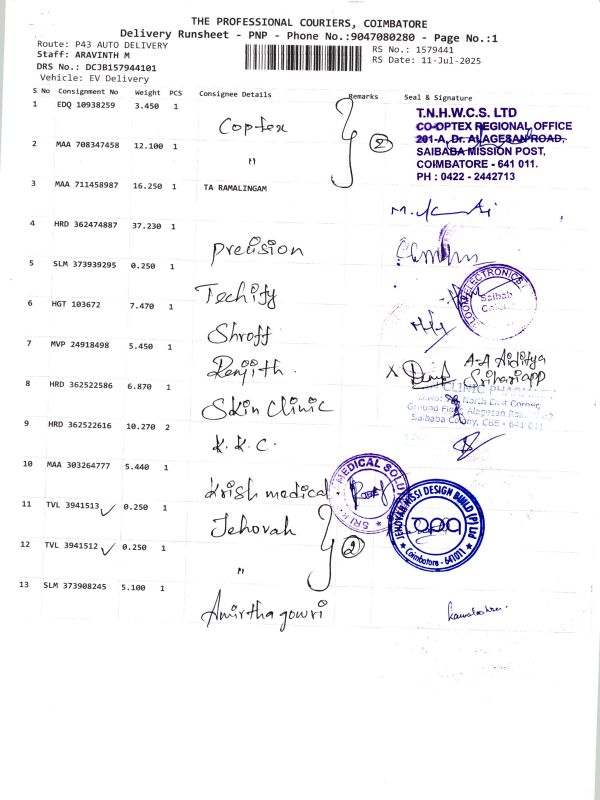 THE PROFESSIONAL COURIERS, COIMBATORE
Delivery Runsheet - PNP - Phone No.:9047080280 - Page No.:1
Route: P43 AUTO DELIVERY
Staff: ARAVINTH M
DRS No.: DCJB157944101
Vehicle: EV Delivery
RS No.: 1579441
RS Date: 11-Jul-2025
S No Consignment No Weight PCS Consignee Details Remarks Seal & Signature
1 EDQ 10938259 3.450 1 Coptex
2 MAA 708347458 12.100 1 " 2
T.N.H.W.C.S. LTD
CO-OPTEX REGIONAL OFFICE
201-A, Dr. ALAGESAN ROAD,
SAIBABA MISSION POST,
COIMBATORE - 641 011.
PH : 0422 - 2442713
3 MAA 711458987 16.250 1 TA RAMALINGAM
4 HRD 362474887 37.230 1 Precision
5 SLM 373939295 0.250 1 Techify
6 HGT 103672 7.470 1 Shroff
ELECTRONICS
Saibab
7 MVP 24918498 5.450 1 Renjith.
X A-A Aiditya
Srihari app
8 HRD 362522586 6.870 1 Skin Clinic
CLINIC
North East Corner,
Ground Floor, Alagesan Road
Saibaba Colony, CBE - 641 011
9 HRD 362522616 10.270 2 K.K.C.
10 MAA 303264777 5.440 1 Krish medical.
SRI K. MEDICAL SOLU
11 TVL 3941513 ✓ 0.250 1 Jehovah
12 TVL 3941512 ✓ 0.250 1 " 2
JEHOVAH NISSI DESIGN BUILD (P) Ltd
Coimbatore - 641011
13 SLM 373908245 5.100 1 Amirtha gowri